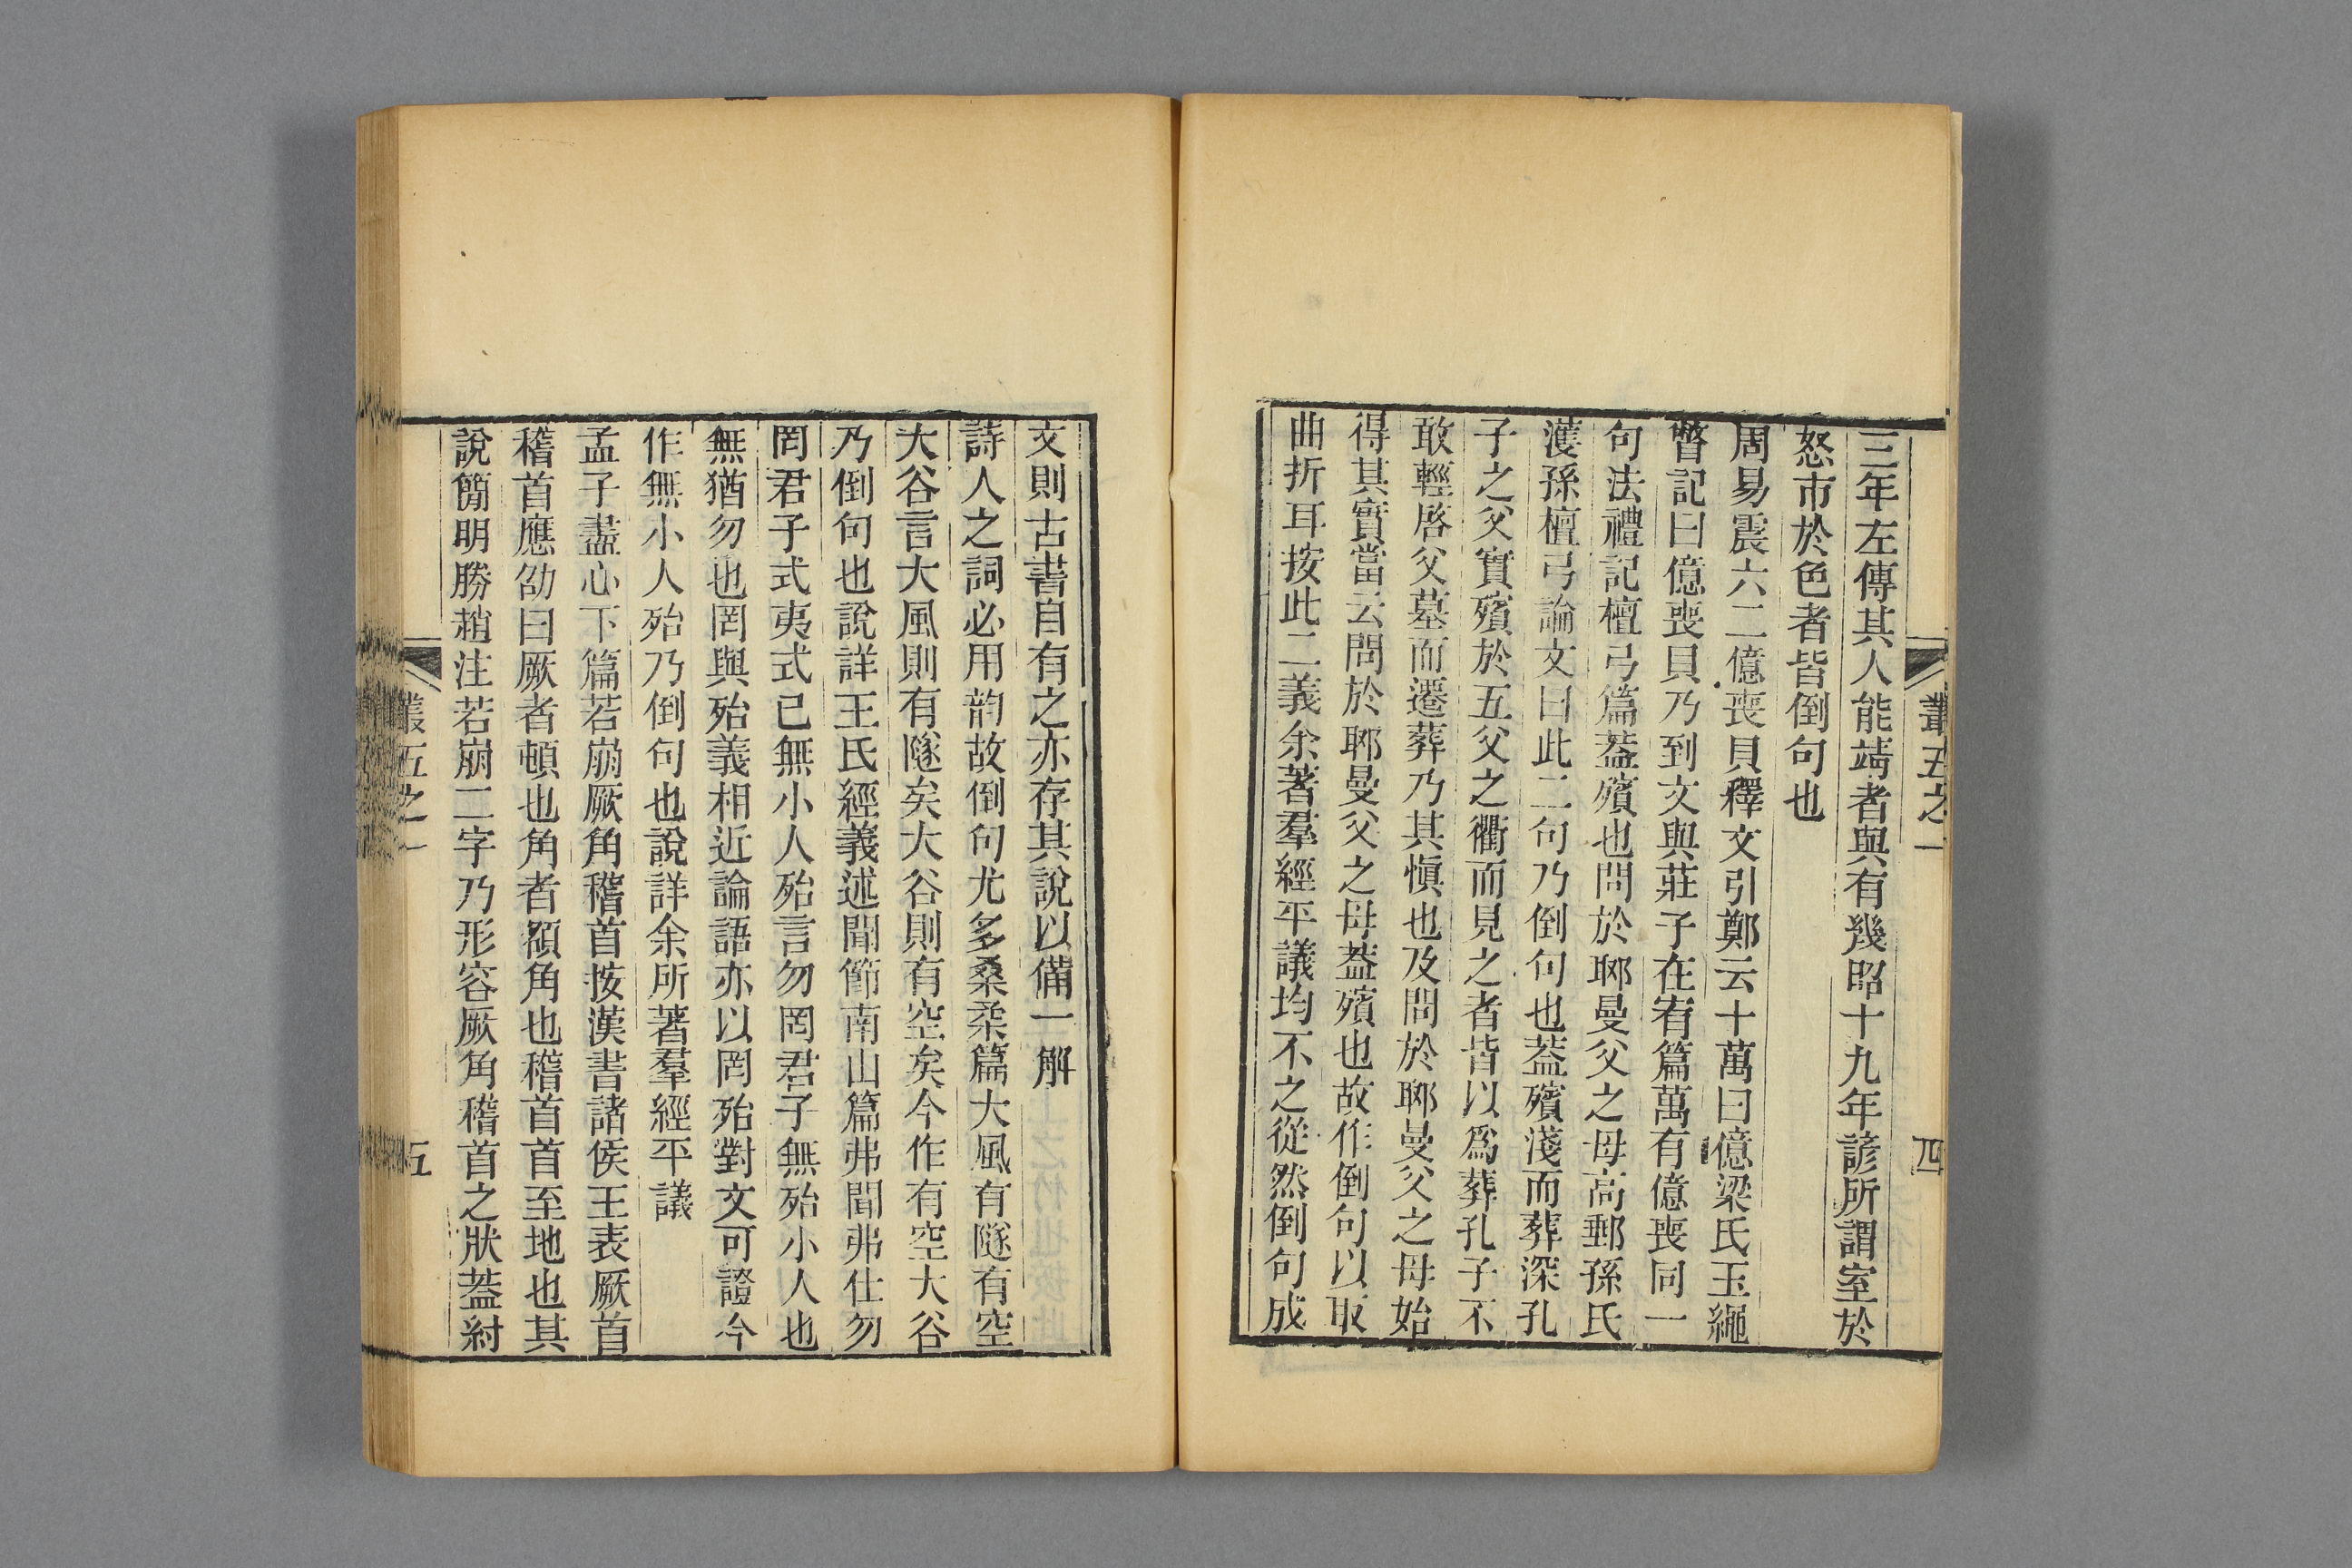 叢五之一
四
三年左傳其人能靖者與有幾昭十九年諺所謂室於
怒市於色者皆倒句也
周易震六二億喪貝釋文引鄭云十萬曰億梁氏玉繩
瞥記曰億喪貝乃到文與莊子在宥篇萬有億喪同一
句法禮記檀弓篇葢殯也問於郰曼父之母高郵孫氏
濩孫檀弓論文曰此二句乃倒句也葢殯淺而葬深孔
子之父實殯於五父之衢而見之者皆以爲葬孔子不
敢輕啓父墓而遷葬乃其愼也及問於郰曼父之母始
得其實當云問於郰曼父之母葢殯也故作倒句以取
曲折耳按此二義余著羣經平議均不之從然倒句成
文則古書自有之亦存其說以備一解
詩人之詞必用韵故倒句尤多桑柔篇大風有隧有空
大谷言大風則有隧矣大谷則有空矣今作有空大谷
乃倒句也說詳王氏經義述聞節南山篇弗聞弗仕勿
罔君子式夷式已無小人殆言勿罔君子無殆小人也
無猶勿也罔與殆義相近論語亦以罔殆對文可證今
作無小人殆乃倒句也說詳余所著羣經平議
孟子盡心下篇若崩厥角稽首按漢書諸侯王表厥首
稽首應劭曰厥者頓也角者額角也稽首首至地也其
說簡明勝趙注若崩二字乃形容厥角稽首之狀葢紂
叢五之一
五